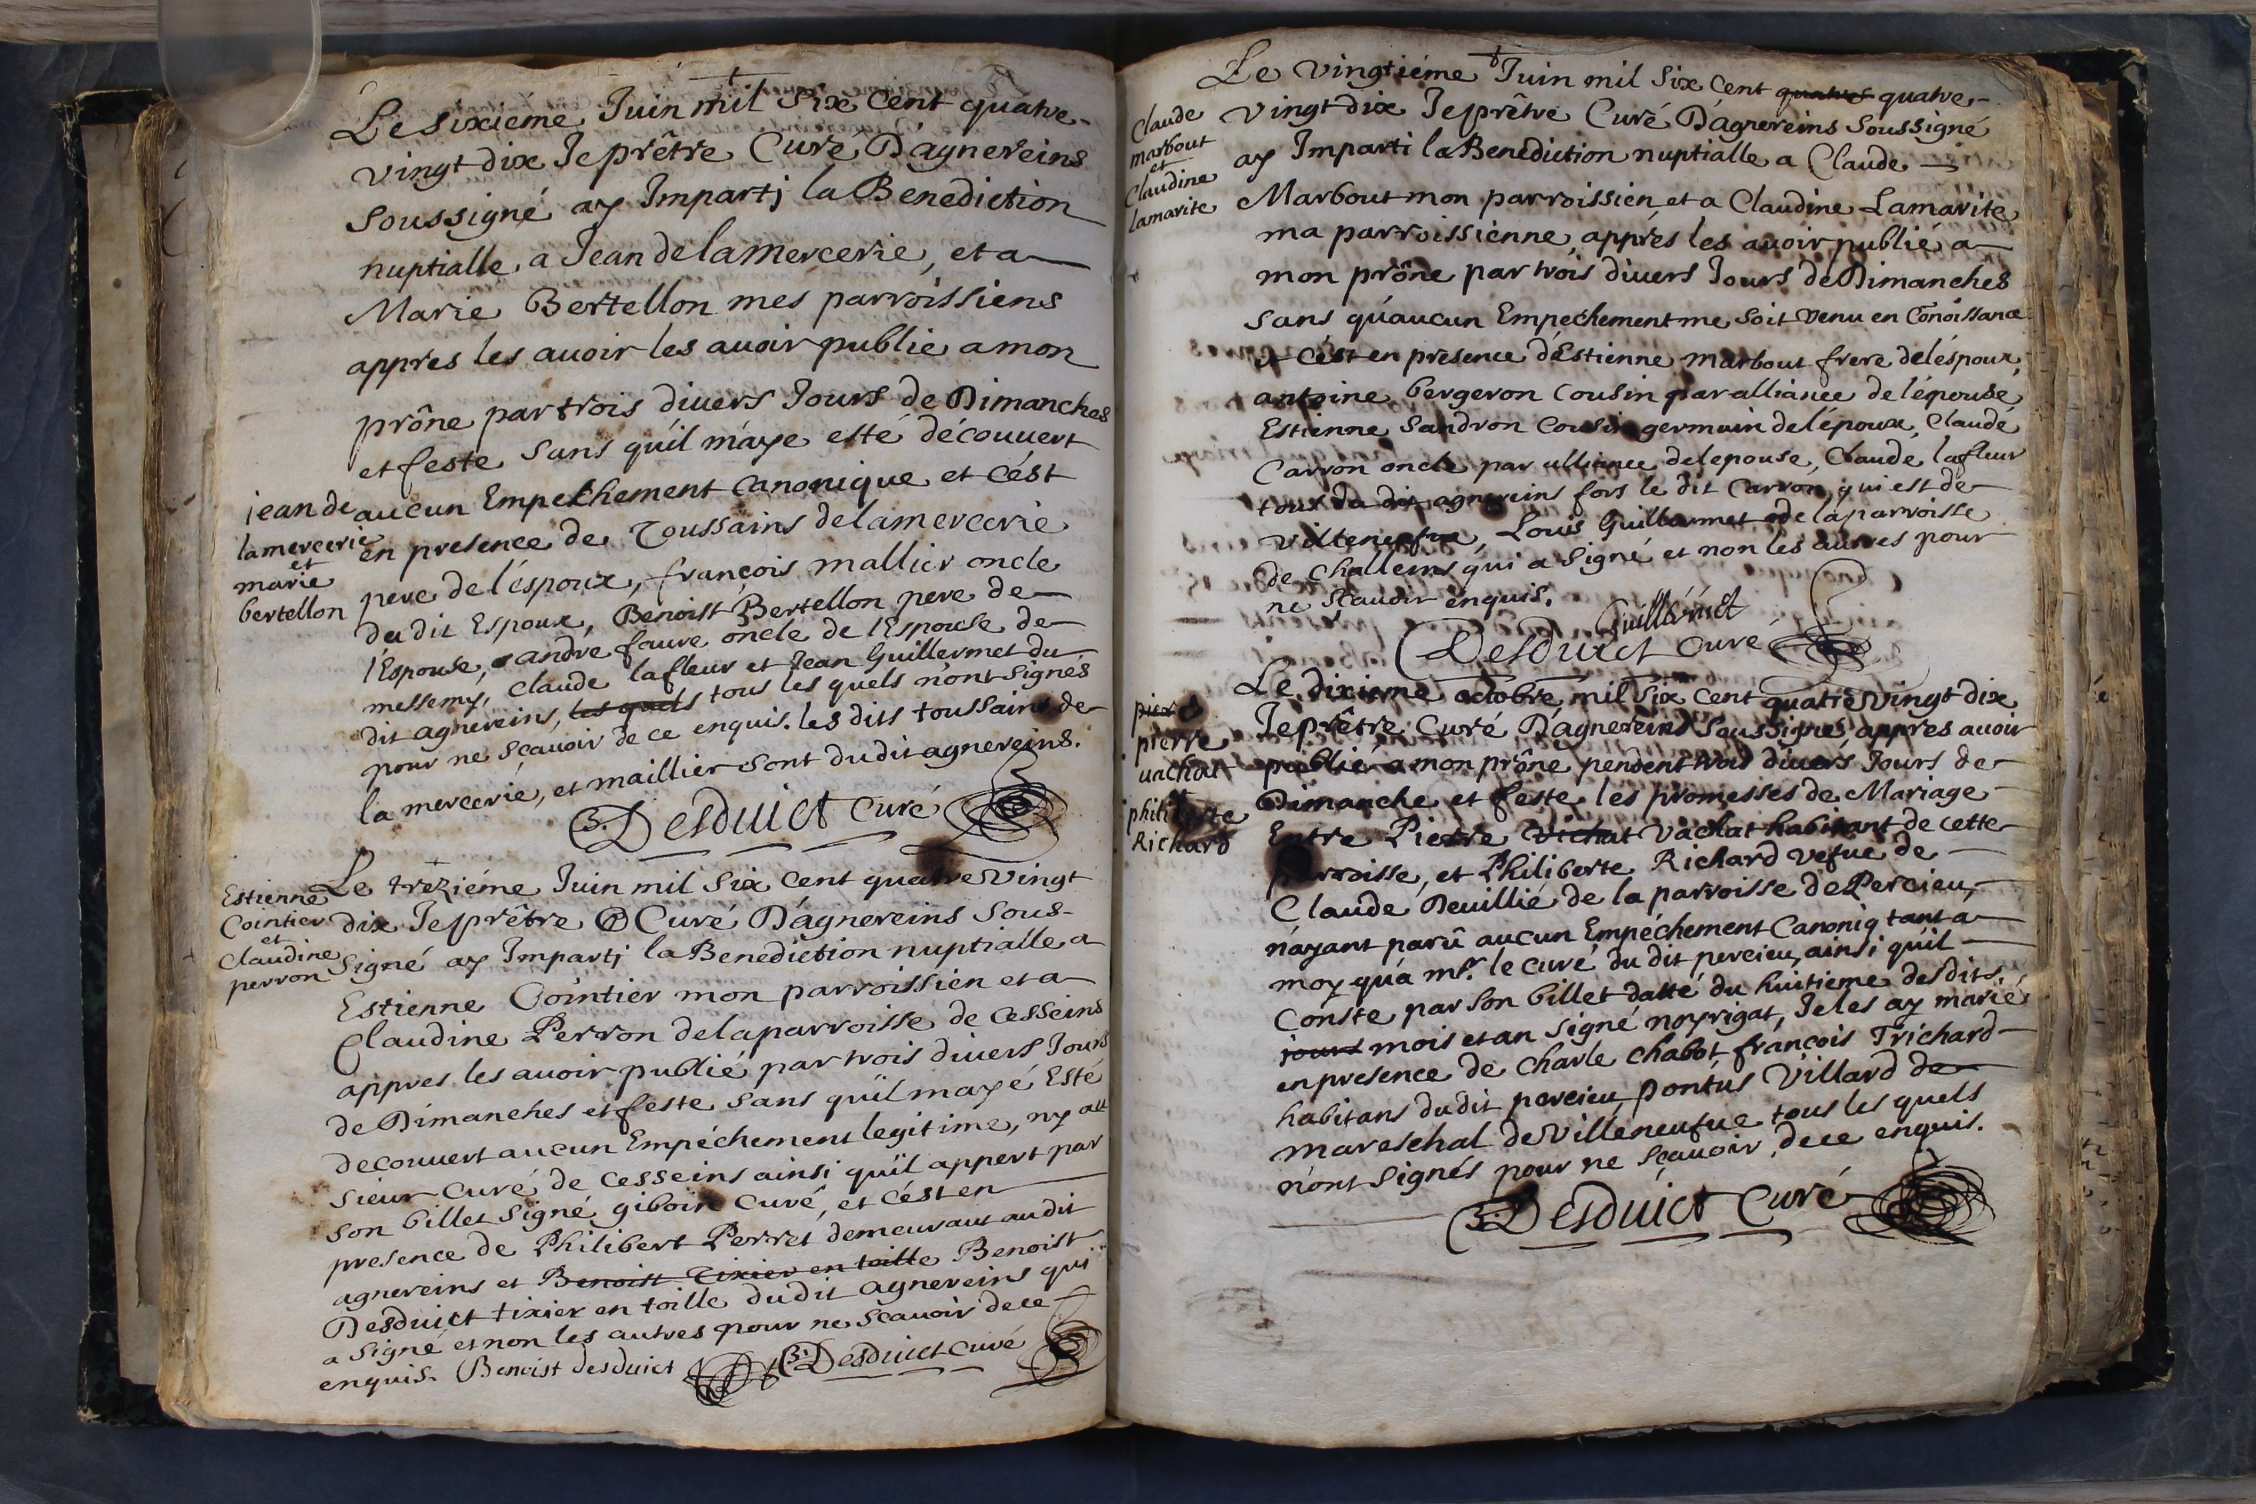 Le sixiéme Juin mil six cent quatre-
vingt dix Je prêtre Curé D'agnereins
soussigné ay Impartj la Benediction
nuptialle a Jean de lamercerie, et a
Marie Bertellon mes parroissiens
appres les auoir les auoir publie a mon
prône par trois divers Jours de Dimanches
et feste sans qu'il m'aye esté découuert
aucun Empechement canonique et c'ést
en presence de Toussains de lamercerie
pere de l'éspoux, françois mallier oncle
du dit Espoux, Benoist Bertellon pere de
l'Espouse, andré faure oncle de l'Espouse de
messemy, Claude lafleur et Jean Guillermet du
dit agnereins, les quels tous les quels n'ont signés
pour ne sçauoir de ce enquis. les dits toussains de
la mercerie, et maillier sont du dit agnereins.
B. Desduict curé
jean de
lamercerie
et
marie
bertellon
Le treziéme Juin mil six cent quatre vingt
dix Je prêtre Curé D'agnereins sous-
signé ay Impartj la Benediction nuptialle a
Estienne Cointier mon parroissien et a
Claudine Perron de la parroisse de cesseins
appres les auoir publié par trois divers Jours
de Dimanches et feste sans qu'il m'aye Esté
decouuert aucun Empéchement legitime, ny au
sieur curé de cesseins ainsi qu'il appert par
son billet signé giboin curé, et c'ést en
presence de Philibert Perret demeurant au dit
agnereins et Benoist Tixier en toille Benoist
Desduict tixier en toille du dit agnereins qui
a signé et non les autres pour ne sçauoir de ce
enquis. Benoist desduict B. Desduict curé
Estienne
Cointier
et
Claudine
perron
Le vingtiéme Juin mil six cent quatres quatre-
vingt dix Je prêtre Curé D'agnereins soussigné
ay Imparti la Benediction nuptialle a Claude
Marbout mon parroissien et a Claudine Lamarite
ma parroissienne, apprés les auoir publié a
mon prône par trois diuers Jours de Dimanches
sans qu'aucun Empechement me soit venu en Conoissance
et c'ést en presence d'Estienne marbout frere de l'éspoux,
antoine bergeron cousin par alliance de l'épouse,
Estienne Sandron cousin germain de l'époux, Claude
Carron oncle par alliance de lepouse, Claude lafleur
tous du dit agnereins fors le dit Carron qui est de
villeneufue, Louis Guillermet de la parroisse
de Challeins qui a signé et non les autres pour
ne sçauoir enquis.
Guillermet
Desduict curé
Claude
marbout
et
Claudine
lamarite
Le dixieme octobre mil six cent quatre vingt dix
Je prêtre Curé D'agnereins soussigné, appres auoir
publié a mon prône pendent trois divers Jours de
Dimanche et feste les promesses de Mariage
Entre Pierre Vichat Vachat habitant de cette
parroisse, et Philiberte Richard vefue de
Claude Deuillié de la parroisse de Percieu,
n'ayant parû aucun Empéchement Canoniq tant a
moy qu'a mr. le curé du dit percieu, ainsi qu'il
Conste par son billet datté du huitieme desdits
jours mois et an signé noyrigat, Je les ay mariés
en presence de Charle Chabot, françois Trichard
habitans dudit percieu, pontus Villard de
mareschal de Villeneufue tous les quels
n'ont signés pour ne sçauoir, de ce enquis.
B. Desduict Curé
pierre
vachat
et
philiberte
Richard